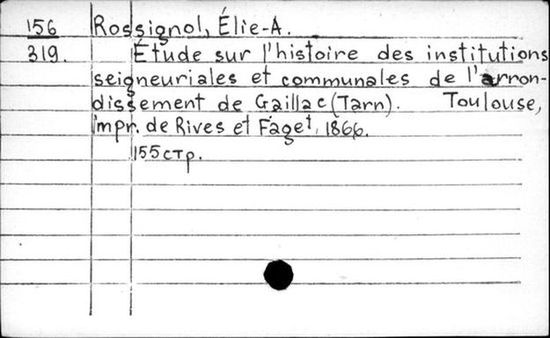 156 Rossignol, Élie-A.
319. Étude sur l'histoire des institutions
seigneuriales et communales de l'arron-
dissement de Gaillac (Tarn). Toulouse,
impr. de Rives et Faget, 1866.
155 стр.